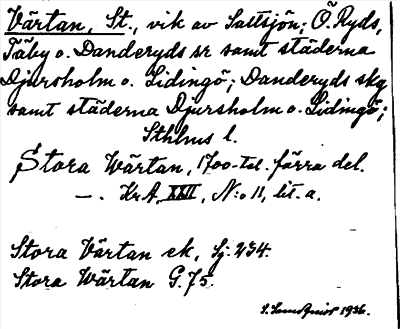 Värtan, St., vik av Saltsjön; Ö. Ryds,
Täby o. Danderyds sr samt städerna
Djursholm o. Lidingö; Danderyds skg
samt städerna Djursholm o. Lidingö;
Sthlms l.
Stora Wärtan, 1700-tal. förra del.
—. KrA, XXII, N:o 11, lit. a.
Stora Värtan ek, Sj. 234.
Stora Wärtan G. 75.
1936.